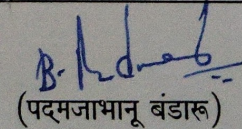 (पदमजाभानू बंडारू)